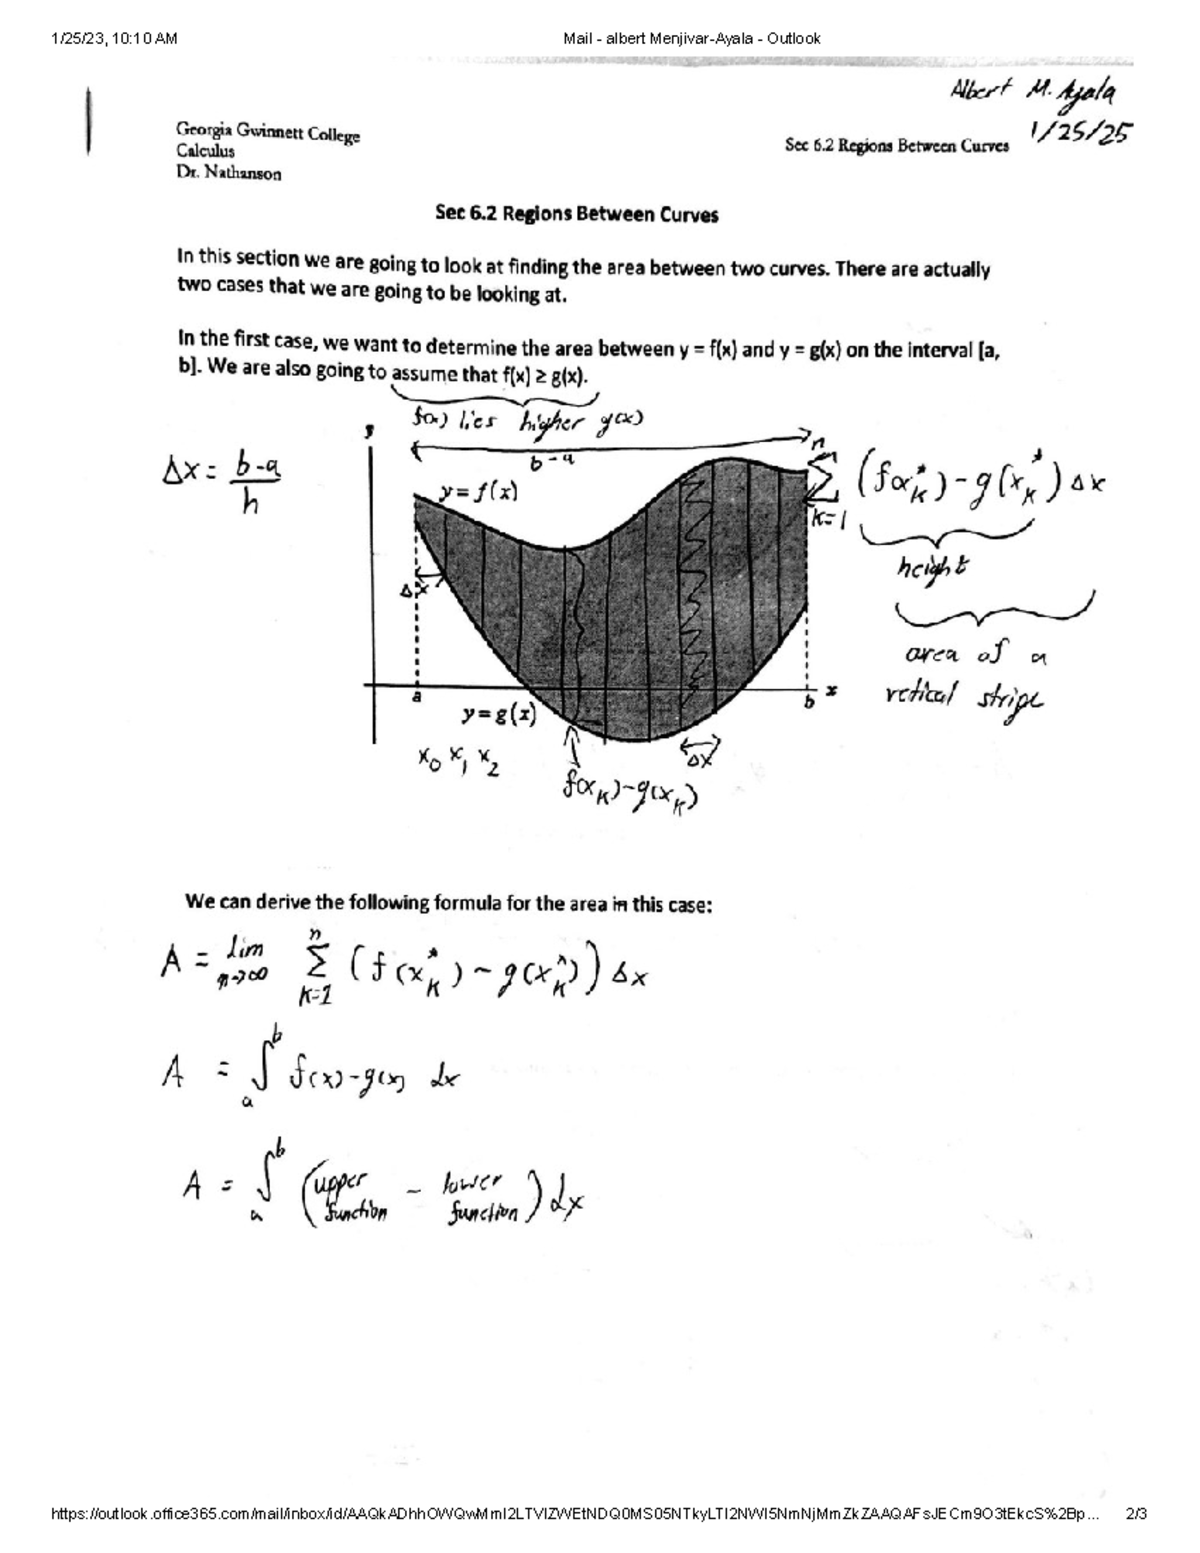 1/25/23, 10:10 AM
Mail - albert Menjivar-Ayala - Outlook
Albert M. Ayala
1/25/25
Georgia Gwinnett College
Calculus
Dr. Nathanson
Sec 6.2 Regions Between Curves
Sec 6.2 Regions Between Curves
In this section we are going to look at finding the area between two curves. There are actually
two cases that we are going to be looking at.
In the first case, we want to determine the area between y = f(x) and y = g(x) on the interval [a,
b]. We are also going to assume that f(x) ≥ g(x).
f(x) lies higher g(x)
y
b-a
Δx = b-a
h
y = f(x)
n
Σ (f(x*k) - g(x*k) Δx
k=1
height
Δx
area of a
vetical stripe
a
b
x
y = g(x)
x0 x1 x2
Δx
f(xk)-g(xk)
We can derive the following formula for the area in this case:
A = lim n→∞ n Σ k=1 (f(x*k) - g(x*k)) Δx
A = ∫ b a f(x)-g(x) dx
A = ∫ b a (upper function - lower function) dx
https://outlook.office365.com/mail/inbox/id/AAQkADhhOWQwMmI2LTVlZWEtNDQ0MS05NTkyLTI2NWI5NmNjMmZkZAAQAFsJECm9O3tEkcS%2Bp...
2/3